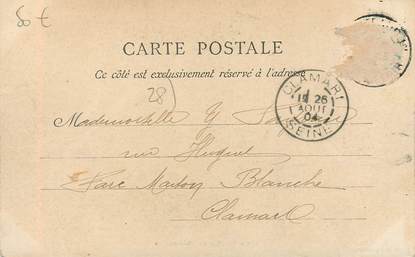 50 €
CARTE POSTALE
Ce côté est exclusivement réservé à l'adresse
28
CLAMART
26
AOUT
04
SEINE
Mademoiselle Y
rue
Parc Maison Blanche
Clamart